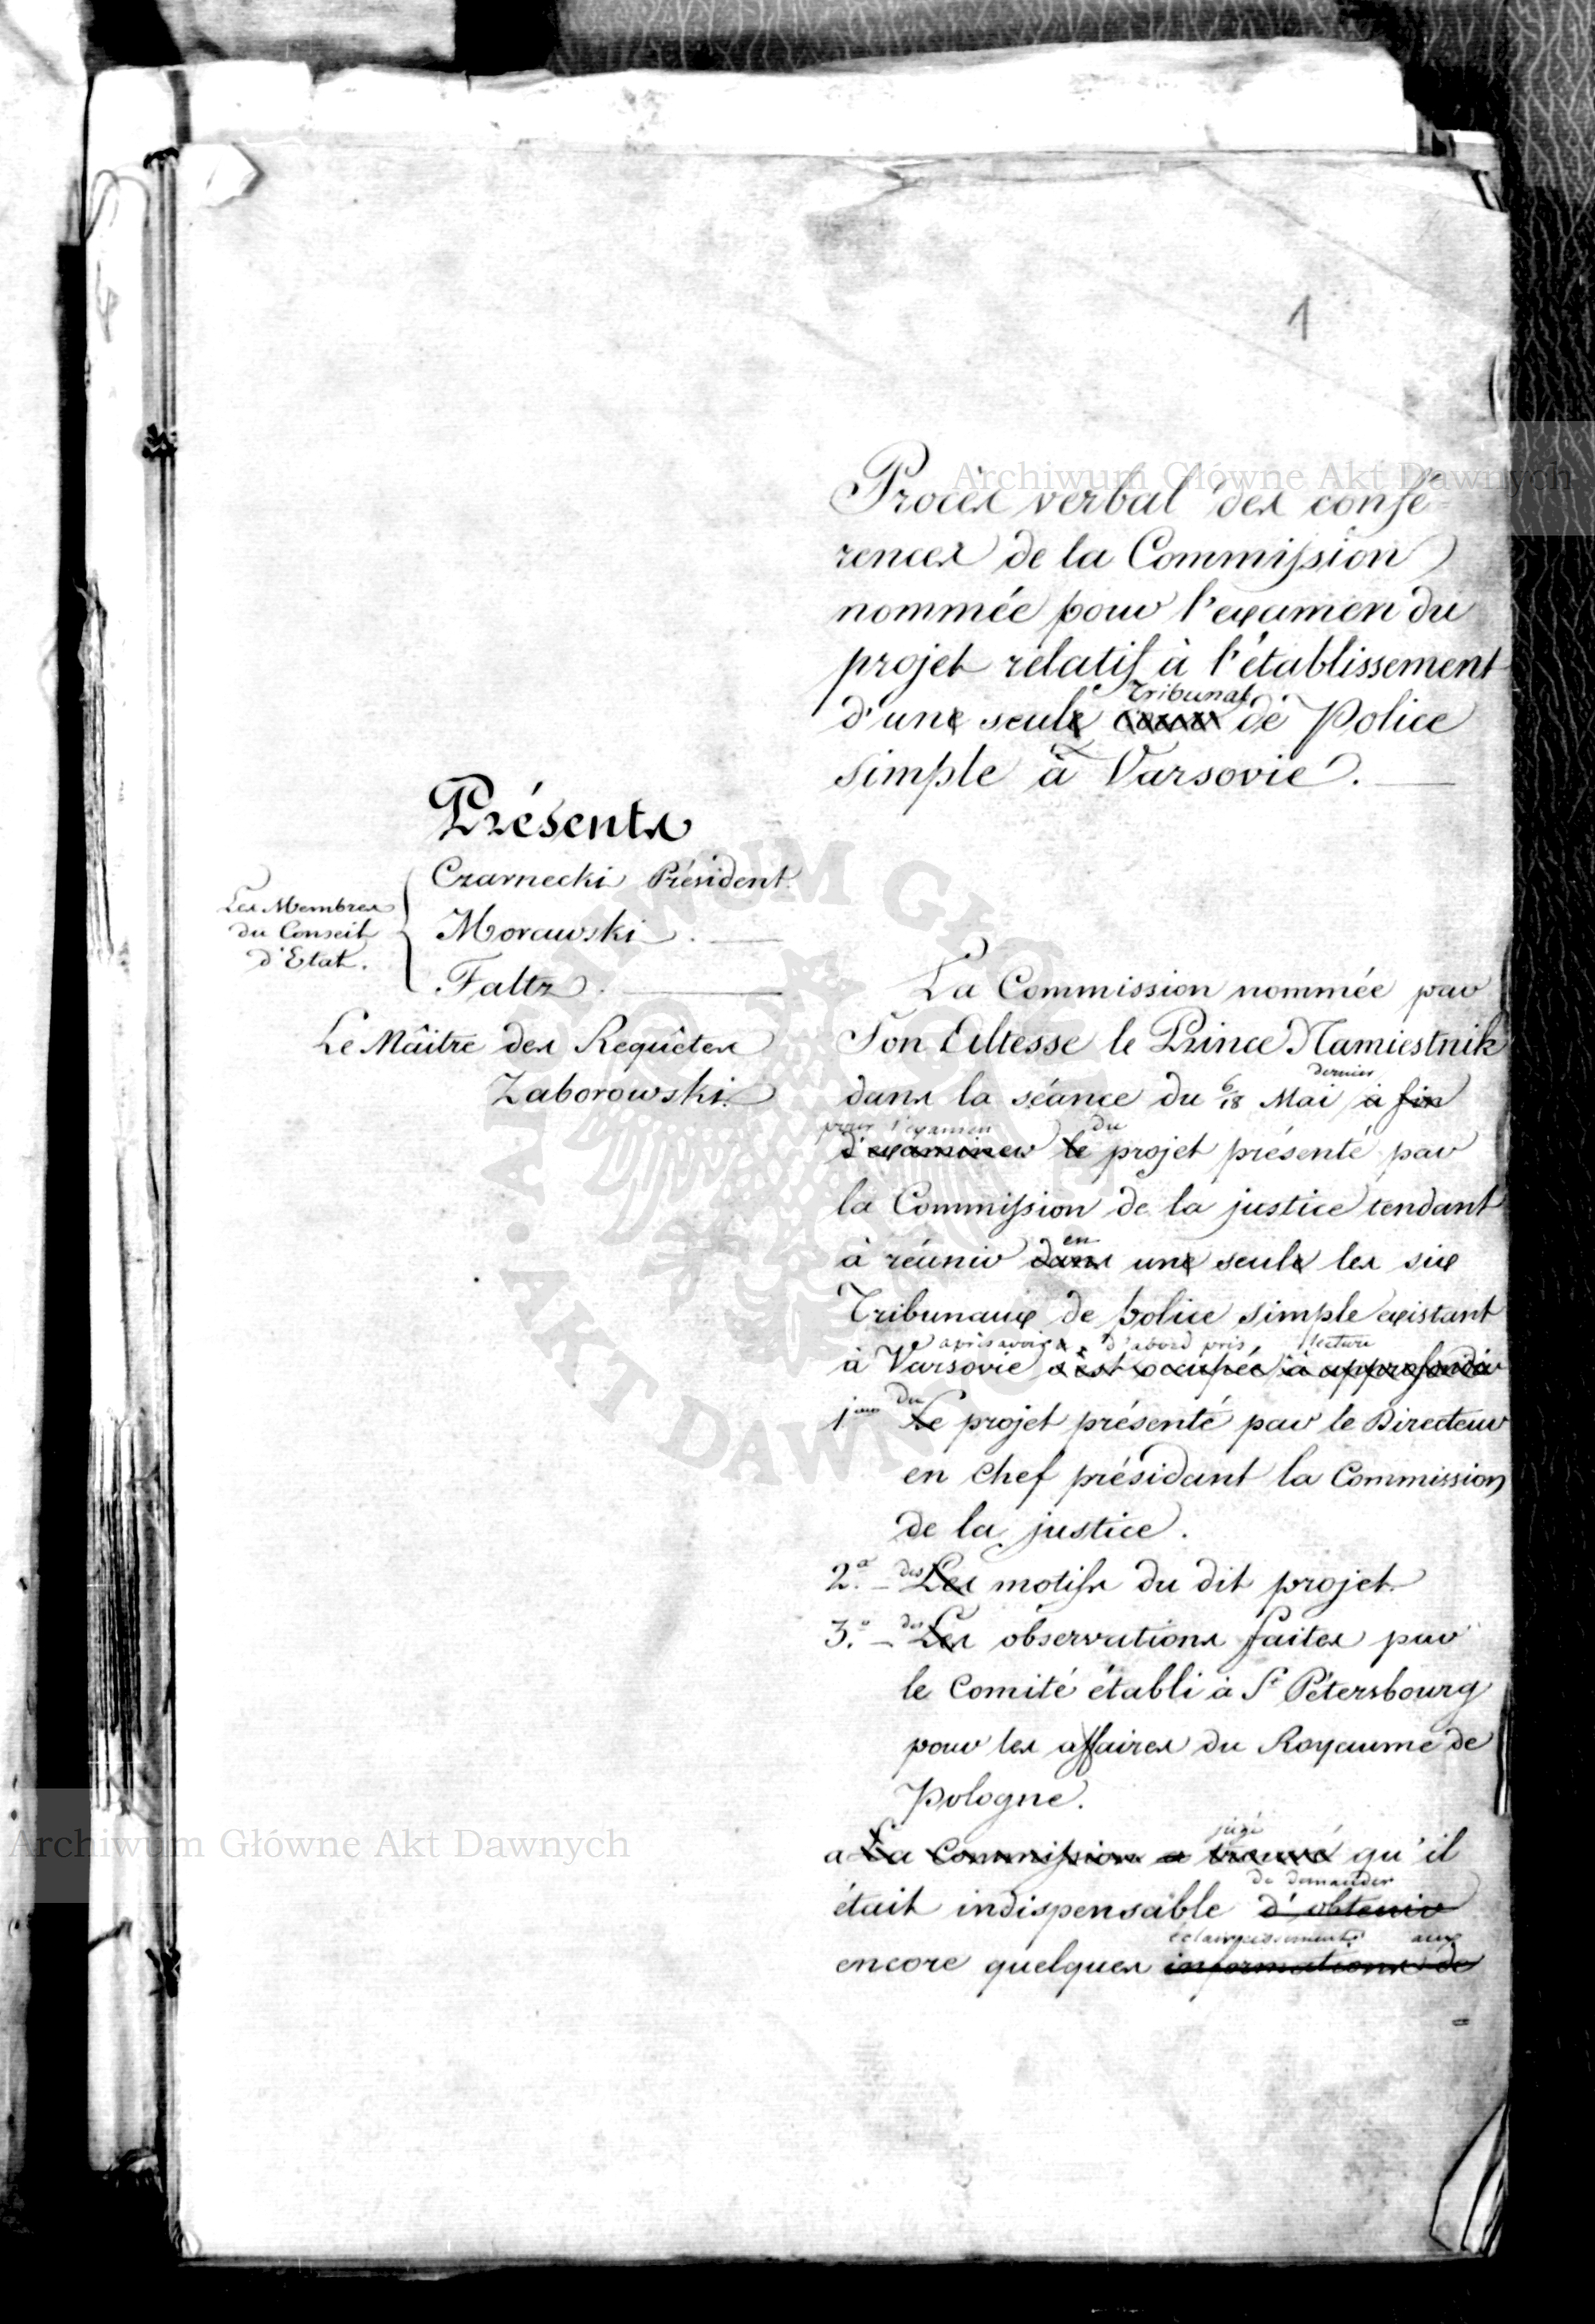 1
Procès verbal des confé=
rences de la Commission
nommée pour l'examen du
projet relatif à l'établissement
Tribunal
d'une seule Cour de Police
simple à Varsovie.
Présents
Les Membres
du Conseil
d'Etat.
Czarnecki Président.
Morawski.
Faltz.
Le Mâitre des Requêtes
Zaborowski.
La Commission nommée par
Son Altesse le Prince Namiestnik
dernier
dans la séance du 6/18 Mai à fin
pour l'examen du
d'examiner le projet présenté par
la Commission de la justice tendant
en
à réunir dans une seule les six
Tribunaux de police simple existant
après avoir d'abord pris lecture
à Varsovie s'est occupée à approfondir
du
1mo Le projet présenté par le Directeur
en Chef présidant la Commission
de la justice.
2.o – des Les motifs du dit projet.
3.o – des Les observations faites par
le Comité établi à St Pétersbourg
pour les affaires du Royaume de
Pologne.
jugé
a La Commission a trouvé qu'il
de demander
était indispensable d'obtenir
éclaircissements aux
encore quelques informations de
Archiwum Główne Akt Dawnych
Archiwum Główne Akt Dawnych
ARCHIWUM GŁÓWNE AKT DAWNYCH